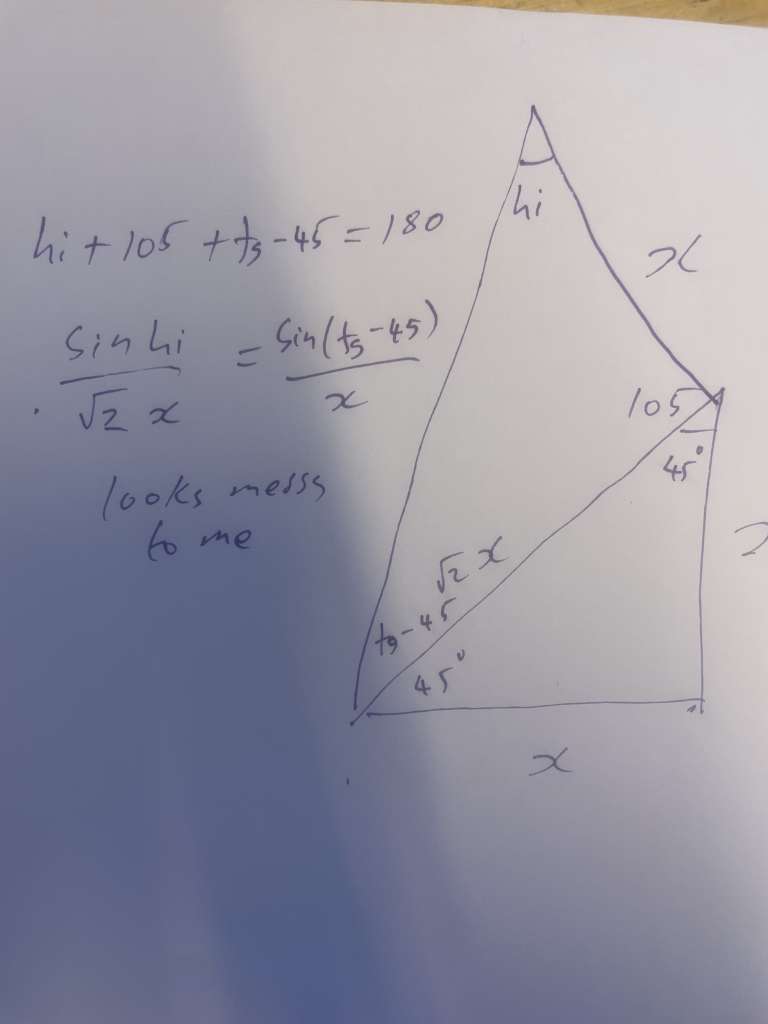 hi + 105 + ty - 45 = 180
sin hi / √2 x = sin(ty - 45) / x
looks messy
to me
hi
x
105
45°
√2 x
ty - 45
45°
x